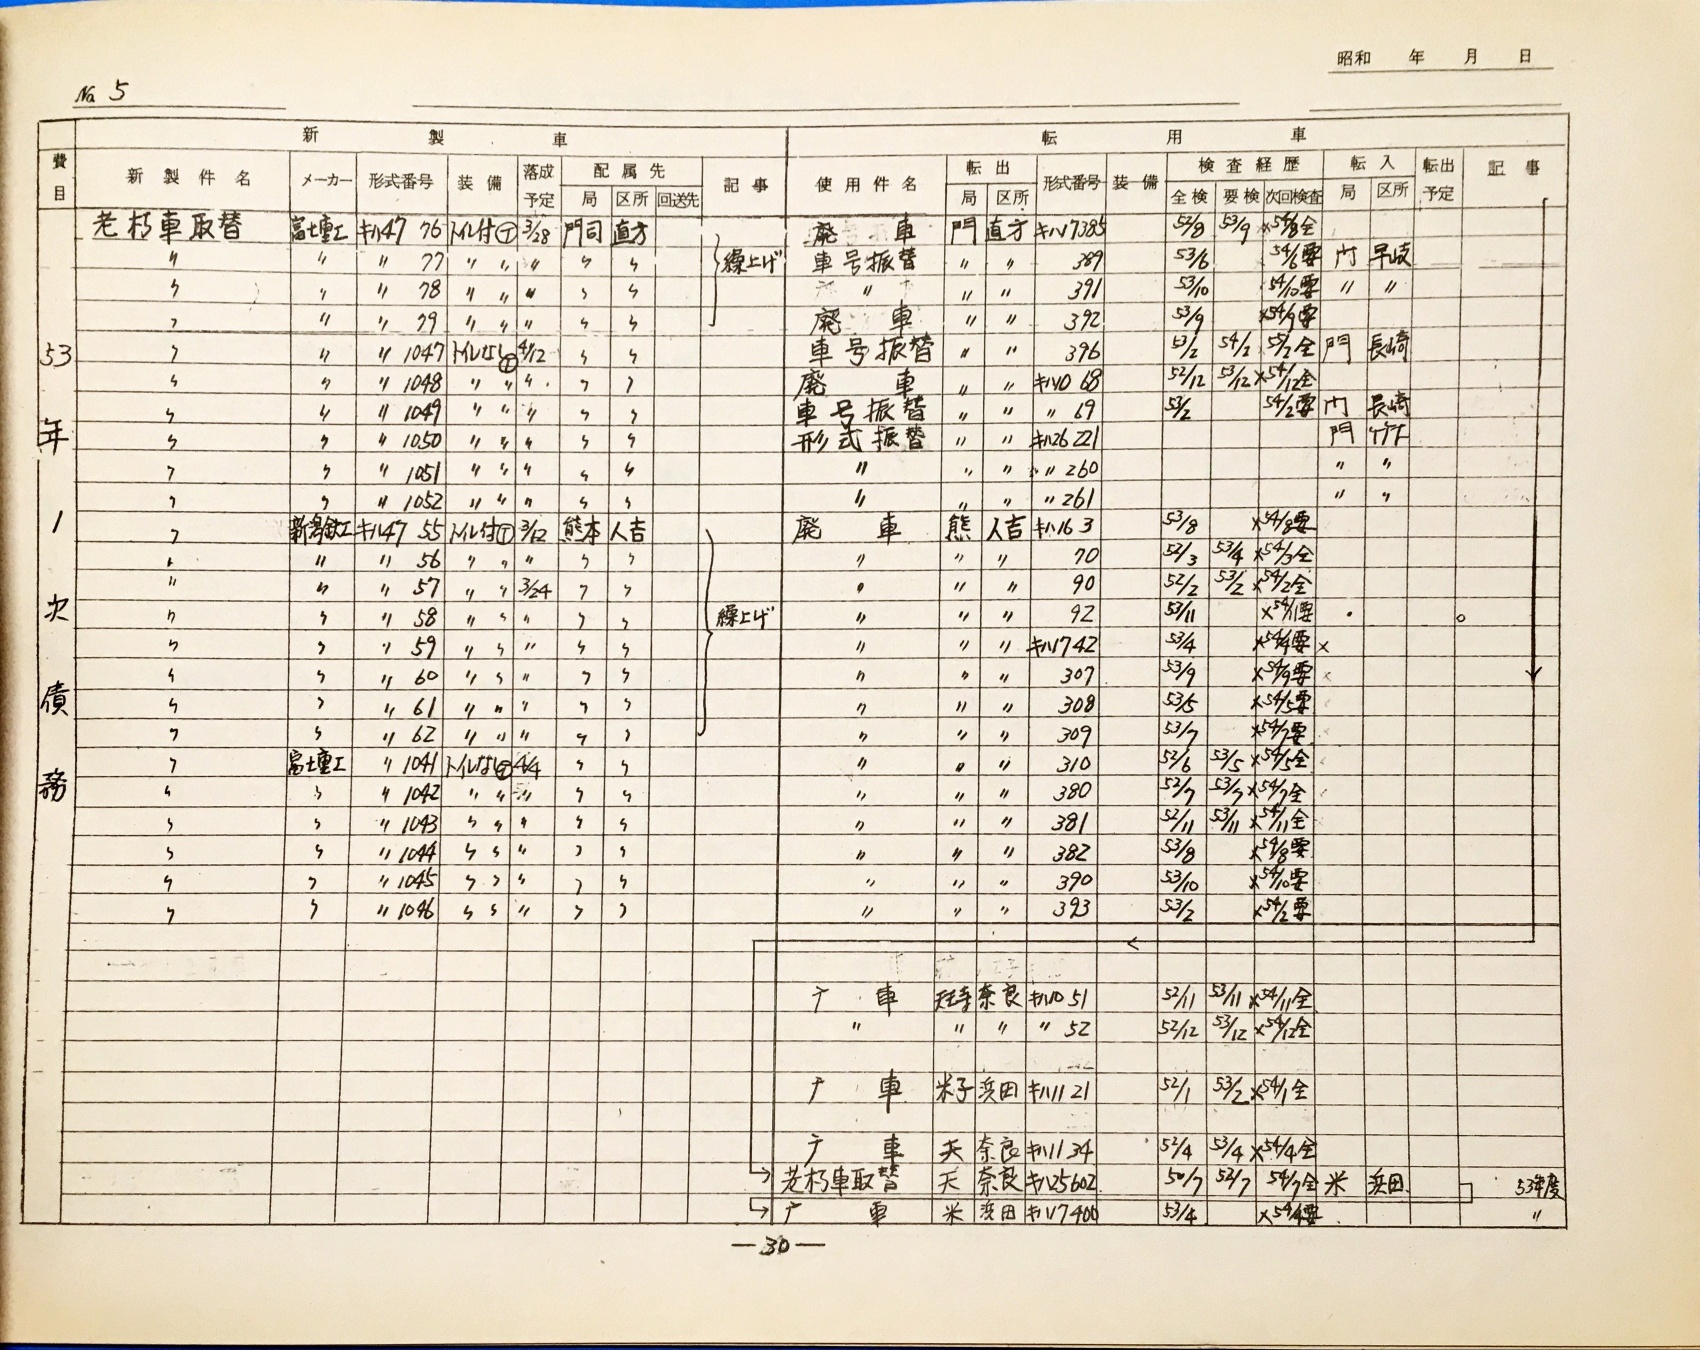 昭和 年 月 日
№ 5
新製車 転用車
費目 新製件名 メーカー 形式番号 装備 落成予定 配属先 記事 使用件名 転出 形式番号 装備 検査経歴 転入 転出予定 記事
局 区所 回送先 局 区所 全検 要検 次回検査 局 区所
53年1次債務
老朽車取替 富士重工 キハ47 76 トイレ付Ⓣ 3/28 門司 直方 繰上げ 廃車 門 直方 キハ17385 52/8 53/9 ×54/8全
〃 〃 〃 77 〃 〃 〃 〃 〃 車号振替 〃 〃 389 53/6 54/6要 門 早岐
〃 〃 〃 78 〃 〃 〃 〃 〃 〃 〃 〃 391 53/10 54/10要 〃 〃
〃 〃 〃 79 〃 〃 〃 〃 〃 廃車 〃 〃 392 53/9 ×54/9要
〃 〃 〃 1047 トイレなしⓉ 4/12 〃 〃 車号振替 〃 〃 396 53/2 54/2 55/2全 門 長崎
〃 〃 〃 1048 〃 〃 〃 〃 〃 廃車 〃 〃 キハ10 68 52/12 53/12 ×54/12全
〃 〃 〃 1049 〃 〃 〃 〃 〃 車号振替 〃 〃 〃 69 53/2 54/2要 門 長崎
〃 〃 〃 1050 〃 〃 〃 〃 〃 形式振替 〃 〃 キハ26 221 門 竹下
〃 〃 〃 1051 〃 〃 〃 〃 〃 〃 〃 〃 〃 260 〃 〃
〃 〃 〃 1052 〃 〃 〃 〃 〃 〃 〃 〃 〃 261 〃 〃
〃 新潟鉄工 キハ47 55 トイレ付Ⓣ 3/12 熊本 人吉 廃車 熊 人吉 キハ16 3 53/8 ×54/8要
〃 〃 〃 56 〃 〃 〃 〃 〃 〃 〃 〃 70 52/3 53/4 ×54/3全
〃 〃 〃 57 〃 〃 3/24 〃 〃 〃 〃 〃 90 52/2 53/2 ×54/2全
〃 〃 〃 58 〃 〃 〃 〃 〃 繰上げ 〃 〃 〃 92 53/11 ×54/11要
〃 〃 〃 59 〃 〃 〃 〃 〃 〃 〃 〃 キハ1742 53/4 ×54/4要 ×
〃 〃 〃 60 〃 〃 〃 〃 〃 〃 〃 〃 307 53/9 ×54/9要
〃 〃 〃 61 〃 〃 〃 〃 〃 〃 〃 〃 308 53/5 ×54/5要
〃 〃 〃 62 〃 〃 〃 〃 〃 〃 〃 〃 309 53/7 ×54/7要
〃 富士重工 〃 1041 トイレなしⓉ 4/4 〃 〃 〃 〃 〃 310 52/6 53/5 ×54/5全
〃 〃 〃 1042 〃 〃 〃 〃 〃 〃 〃 〃 380 52/7 53/7 ×54/7全
〃 〃 〃 1043 〃 〃 〃 〃 〃 〃 〃 〃 381 52/11 53/11 ×54/11全
〃 〃 〃 1044 〃 〃 〃 〃 〃 〃 〃 〃 382 53/8 ×54/8要
〃 〃 〃 1045 〃 〃 〃 〃 〃 〃 〃 〃 390 53/10 ×54/10要
〃 〃 〃 1046 〃 〃 〃 〃 〃 〃 〃 〃 393 53/2 ×54/2要
車 天王寺 奈良 キハ10 51 52/11 53/11 ×54/11全
〃 〃 〃 〃 52 52/12 53/12 ×54/12全
車 米子 浜田 キハ11 21 52/1 53/2 ×54/1全
車 天 奈良 キハ11 34 52/4 53/4 ×54/4全
老朽車取替 天 奈良 キハ25602 50/7 52/7 54/7全 米 浜田 53年度
車 米 浜田 キハ17400 53/4 ×54/4要 〃
—30—